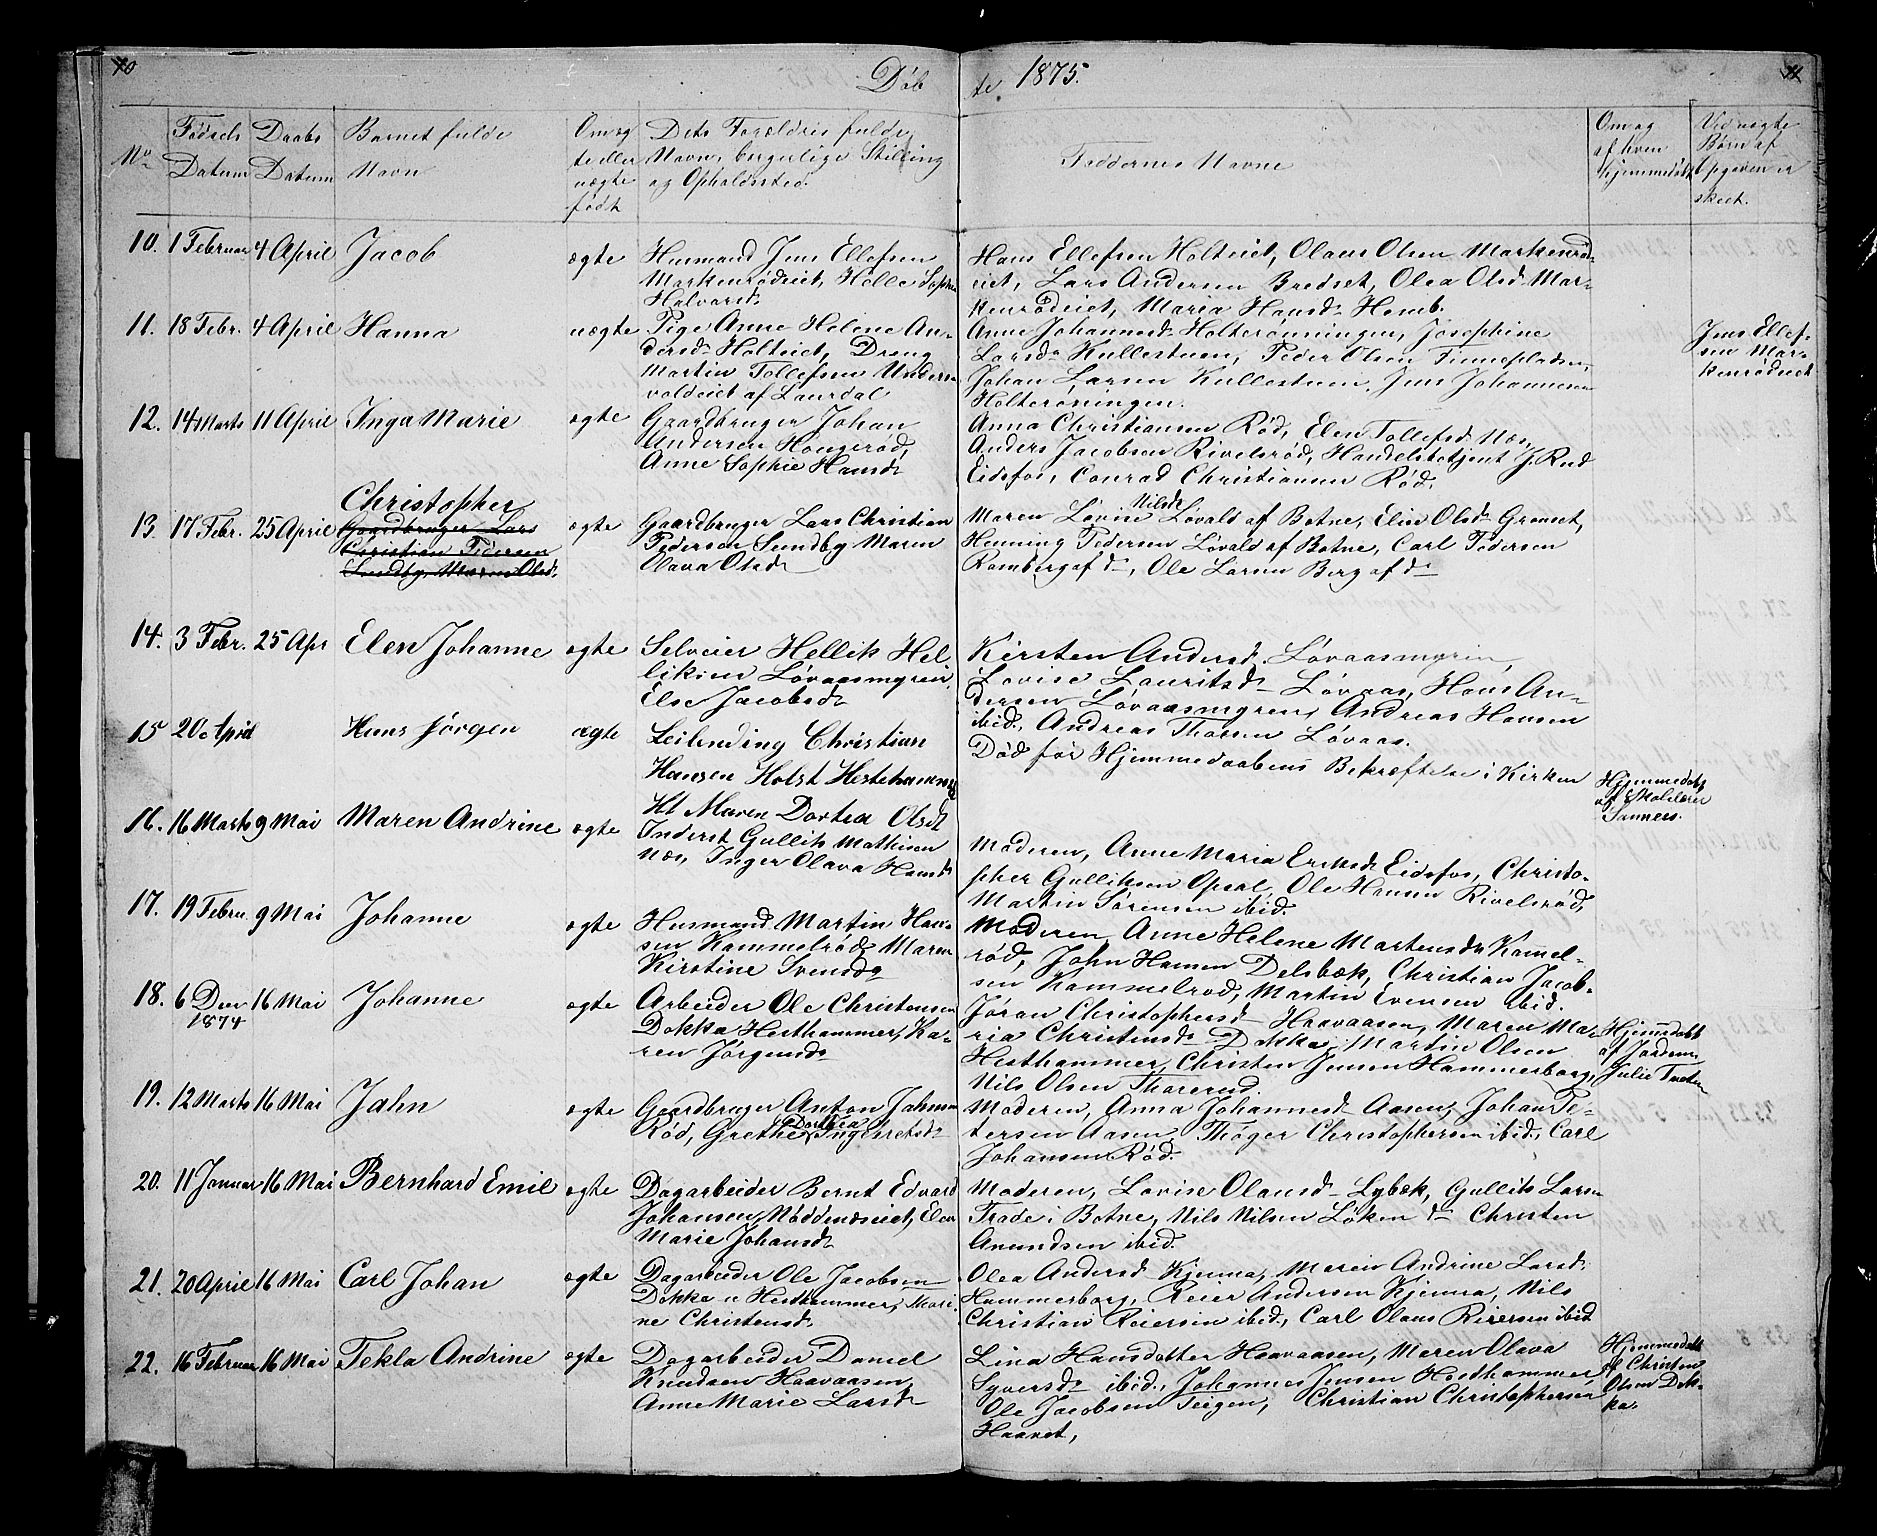 10
Døb
te. 1875.
11
No
Fødsels Datum
Daabs Datum
Barnet fulde Navn
Om æg
te eller
uægte
født
Dets Forældris fulde
Navn, borgerlige Stilling
og Opholdssted.
Faddernes Navne
Om og
af hvem
hjemmedøbt
Ved uægte
Børn af
Opgaven er
skeet.
10. 1 Februar 4 April Jacob ægte
Husmand Jens Ellefsen
Markenrødeiet, Helle Sophie
Halvorsd
Hans Ellefsen Holteiet, Olaus Olsen Markenrød-
eiet, Lars Andersen Bredset, Olea Olsd Mar-
kenrødeiet, Maria Hansd Homb.
11. 18 Febr. 4 April Hanna uægte
Pige Anne Helene An-
dersd Holteiet, Dreng
Martin Tollefsen Unders-
voldeiet af Laurdal
Anne Johannesd Holterønningen, Josephine
Larsd Kullestuen, Peder Olsen Finnepladsen,
Johan Larsen Kullestuen, Jens Johannesen
Holterøningen.
Jens Ellef-
sen Mar-
kenrødeiet
12. 14 Marts 11 April Inga Marie ægte
Gaardbruger Johan
Andersen Hougerød,
Anne Sophie Hansd
Anna Christiansen Rød, Elen Tollefsd Næs,
Anders Jacobsen Rivelsrød, Handelsbetjent J. Rud
Eidsfos, Conrad Christiansen Rød.
13. 17 Febr. 25 April Christopher ægte
Gaardbruger Lars
Christian Pedersen
Sundby, Maren Olsd.
Gaardbruger Lars Christian
Pedersen Sundby Maren
Olava Olsd
Maren Lovise Nilsd Løvald af Botne, Elise Olsd Gronset,
Henning Pedersen Løvald af Botne, Carl Pedersen
Ramberg af do, Ole Larsen Berg af do
14. 3 Febr. 25 Apr Elen Johanne ægte
Selveier Hellik Hel-
liksen Løvaasmyren,
Else Jacobsd
Kirsten Andersd. Løvaasmyren,
Lovise Lauritsd Løvaas, Hans An-
dersen Løvaasmyren, Andreas Hansen
ibid., Andreas Thoresen Løvaas.
15 20 April Hans Jørgen ægte
Leilending Christian
Hansen Holst Hesthammer
Ht Maren Dortea Olsd
Død før Hjemmedaabens Bekræftelse i Kirken
Hjemmedøbt
af Skolelærer
Sanness.
16. 16 Marts 9 Mai Maren Andrine ægte
Inderst Gullik Mathisen
Næs, Inger Olava Hansd
Moderen, Anne Maria Eriksd Eidsfos, Christo-
pher Gulliksen Opsal, Ole Hansen Rivelsrød,
Martin Sørensen ibid.
17. 19 Febru. 9 Mai Johanne ægte
Husmand Martin Han-
sen Kammelrød, Maren
Kirstine Svensdr
Moderen, Anne Helene Martensdr Kamel-
rød, John Hansen Delsbæk, Christian Jacob-
sen Kammelrød, Martin Evensen ibid.
18. 6 Decr 1874 16 Mai Johanne ægte
Arbeider Ole Christensen
Dokka Hesthammer, Ka-
ren Jørgensd
Jøran Christophersd Haavaasen, Maren Ma-
ria Christensd Dokka, Martin Olsen
Hesthammer, Christen Jensen Hammerborg,
Nils Olsen Thorerud.
Hjemdøbt
af Jordem.
Julie
19. 12 Marts 16 Mai Jahn ægte
Gaardbruger Anton Jahnsen
Rød, Grethe Dorthea Ingebretsd
Moderen, Anna Johannesd Aasen, Johan Pe-
tersen Aasen, Thøger Christophersen ibid., Carl
Johansen Rød.
20. 11 Januar 16 Mai Bernhard Emil ægte
Dagarbeider Bernt Edvard
Johansen Nøddenæseiet, Elen
Marie Johansd
Moderen, Lovise Olausd Lybæk, Gullik Larsen
Trade i Botne, Nils Nilsen Løken do Christen
Amundsen ibid.
21. 20 April 16 Mai Carl Johan ægte
Dagarbeider Ole Jacobsen
Dokka u Hesthammer, Mari-
ne Christensd
Olea Andersd Kjenna, Maren Andrine Larsd
Hammerborg, Reier Andersen Kjenna, Nils
Christian Reiersen ibid., Carl Olaus Reiersen ibid
22. 16 Februar 16 Mai Tekla Andrine ægte
Dagarbeider Daniel
Knudsen Haavaasen,
Anne Marie Larsd
Lina Hansdatter Haavaasen, Maren Olava
Syversd ibid., Johannes Jensen Hesthammer,
Ole Jacobsen Teigen, Christian Christophersen
Haavet,
Hjemmedøbt
af Christen
Olsen Dok-
ka.